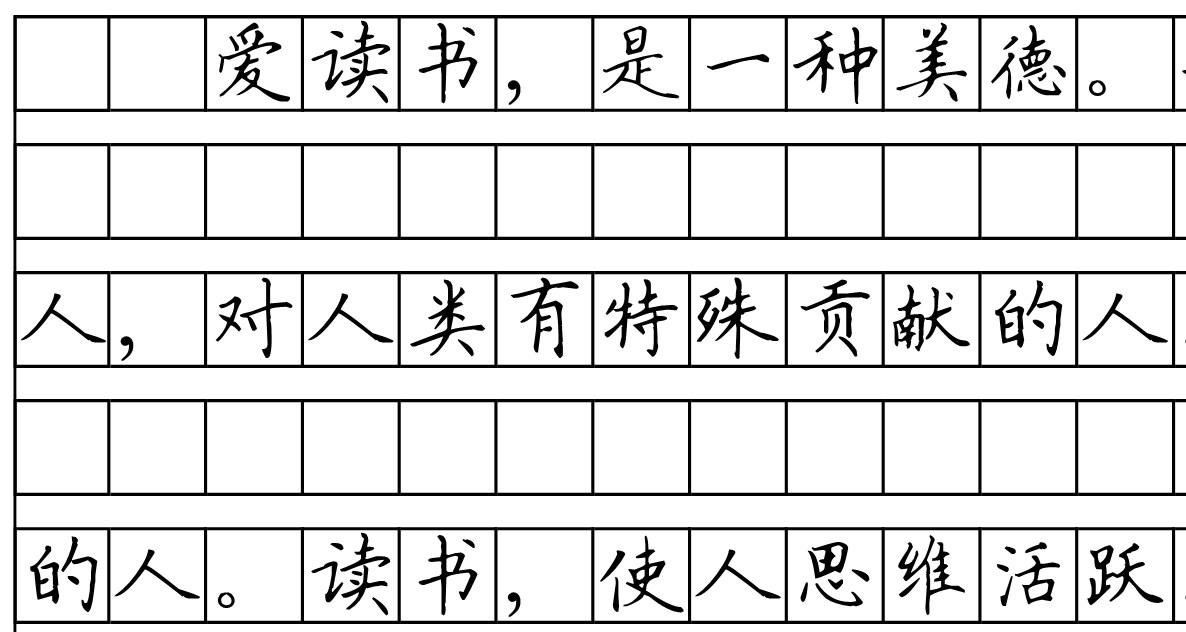 爱读书，是一种美德。
人，对人类有特殊贡献的人
的人。读书，使人思维活跃